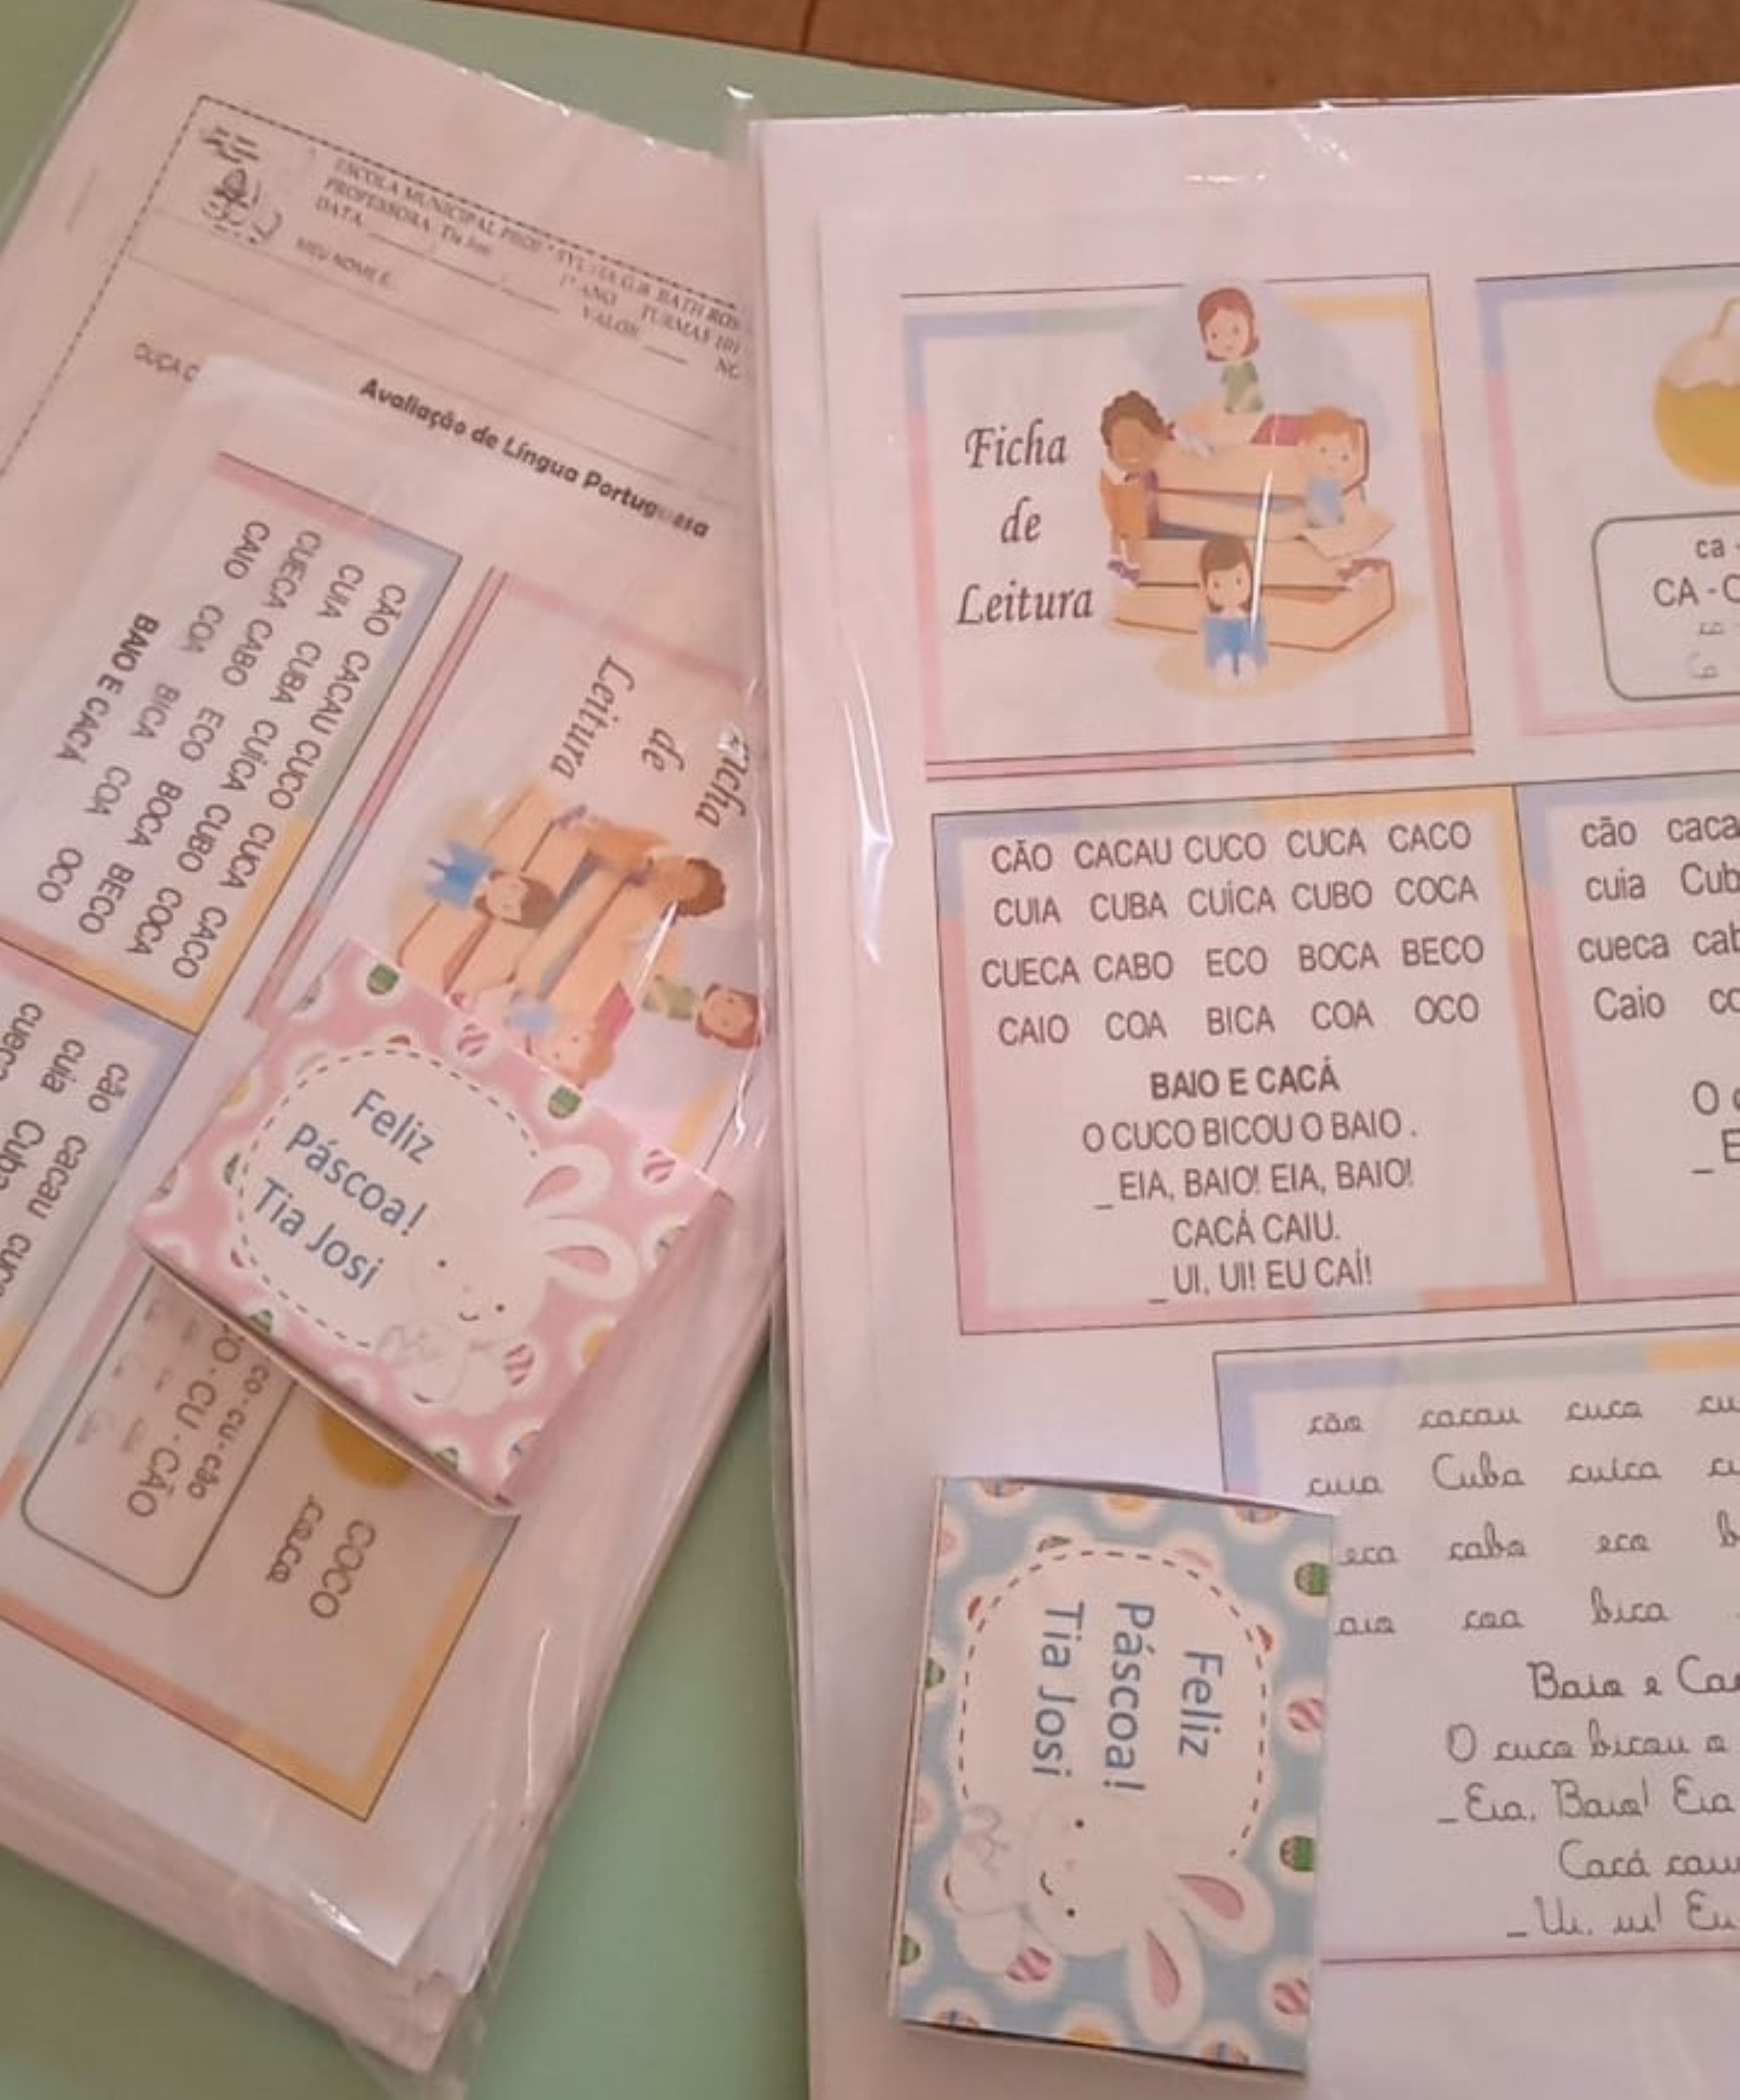 ESCOLA MUNICIPAL
PROFESSORA: Tia Josi
1º ANO TURMAS 101
DATA ____/____/____ VALOR ____
MEU NOME É:
OUÇA
Avaliação de Língua Portuguesa
CÃO CACAU CUCO CUCA CACO
CUIA CUBA CUÍCA CUBO COCA
CUECA CABO ECO BOCA BECO
CAIO COA BICA COA OCO
BAIO E CACÁ
Ficha
de
Leitura
cão cacau
cuia Cuba
Feliz
Páscoa!
Tia Josi
co - cu - cão
CO - CU - CÃO
COCO
coco
Ficha
de
Leitura
ca -
CA -
CÃO CACAU CUCO CUCA CACO
CUIA CUBA CUÍCA CUBO COCA
CUECA CABO ECO BOCA BECO
CAIO COA BICA COA OCO
BAIO E CACÁ
O CUCO BICOU O BAIO .
_ EIA, BAIO! EIA, BAIO!
CACÁ CAIU.
_ UI, UI! EU CAÍ!
cão caca
cuia Cub
cueca cab
Caio co
O c
_ E
cão cacau cuca cu
cuia Cuba cuíca cu
eca cabo eco b
aio coa bica
Baio e Cac
O cuco bicou o
_ Eia, Baio! Eia
Cacá caiu
_ Ui, ui! Eu
Feliz
Páscoa!
Tia Josi